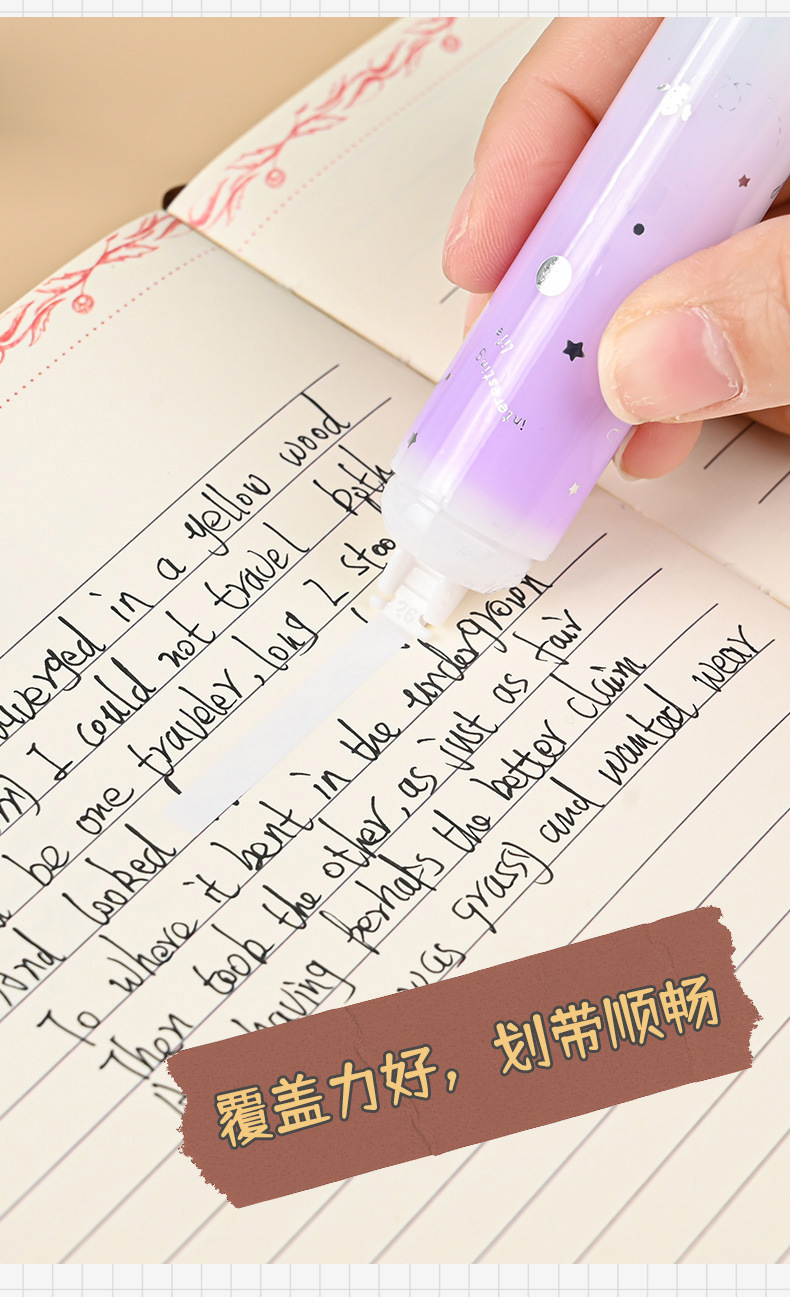 diverged in a yellow wood
I could not travel both
be one traveler, long I stoo
And looked
To where it bent in the undergrown
Then took the other, as just as fair
having perhaps the better claim
was grassy and wanted wear
interesting
life
26
覆盖力好，划带顺畅